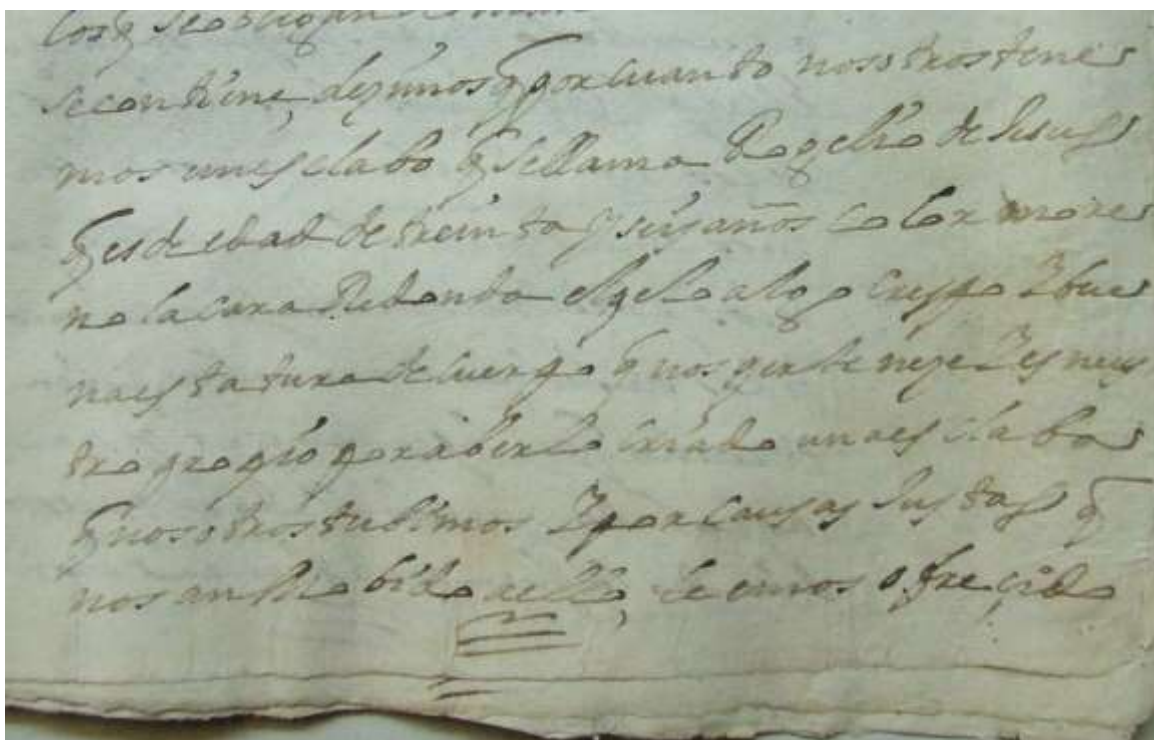 los q se obligan
se contiene, dezimos q por cuanto nosotros tene
mos un esclabo q se llama Rogelio de Jesus
q es de edad de treinta y seis años color more
no la cara Redonda el pelo algo crespo y bue
na estatura de cuerpo q nos perteneze y es nues
tro propio por aberlo criado una esclaba
q nosotros tubimos y por causas justas q
nos an mobido a ello, le emos ofrecido